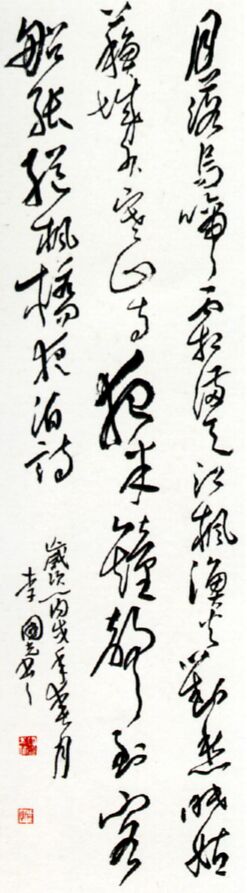 月落烏啼霜滿天江枫漁火對愁眠姑
蘇城外寒山寺夜半鐘聲到客
船張繼枫橋夜泊詩
歲次丙戌年
李國